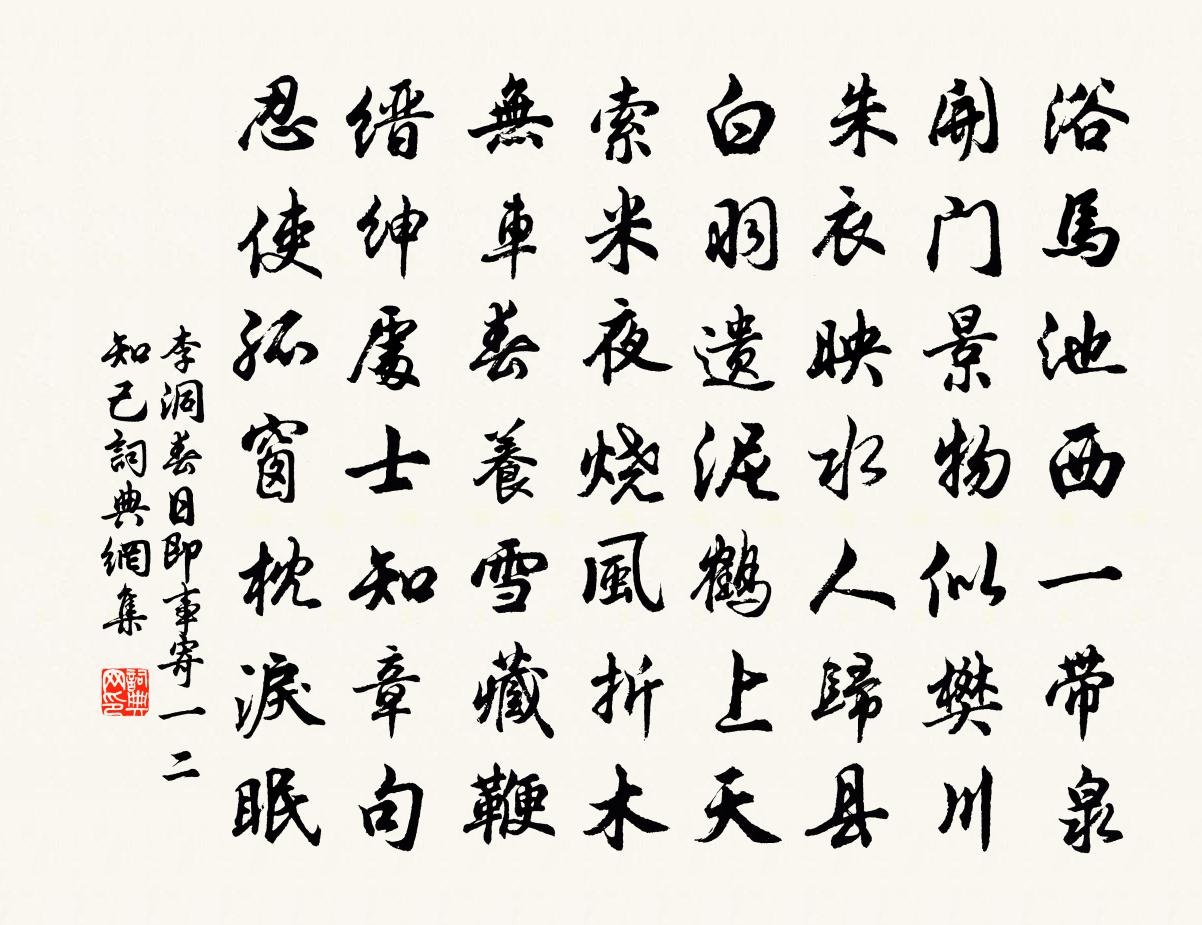 浴馬池西一帶泉
開门景物似樊川
朱衣映水人歸县
白羽遗泥鹤上天
索米夜烧風折木
無車春養雪藏鞭
缙绅處士知章句
忍使孤窗枕淚眠
李洞春日即事寄一二
知己詞典網集
詞典网印